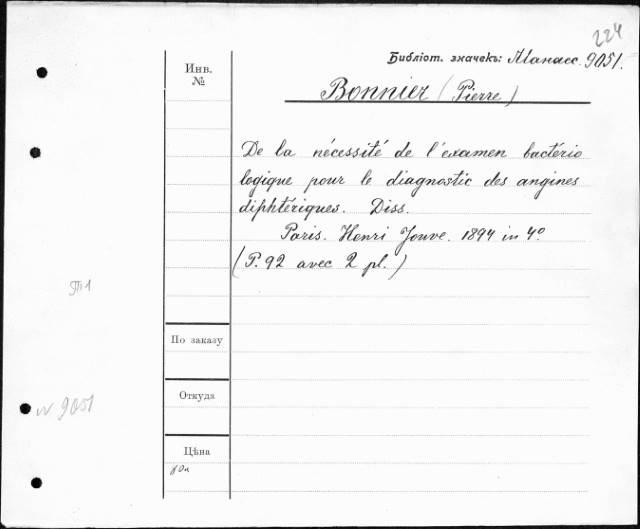 224
Библіот. значекъ: Манасс. 9051.
Инв.
№
Bonnier (Pierre)
De la nécessité de l'examen bactério
logique pour le diagnostic des angines
diphtériques. Diss.
Paris. Henri Jouve. 1894 in 4º
(P. 92 avec 2 pl.)
По заказу
Откуда
№ 9051
Цѣна